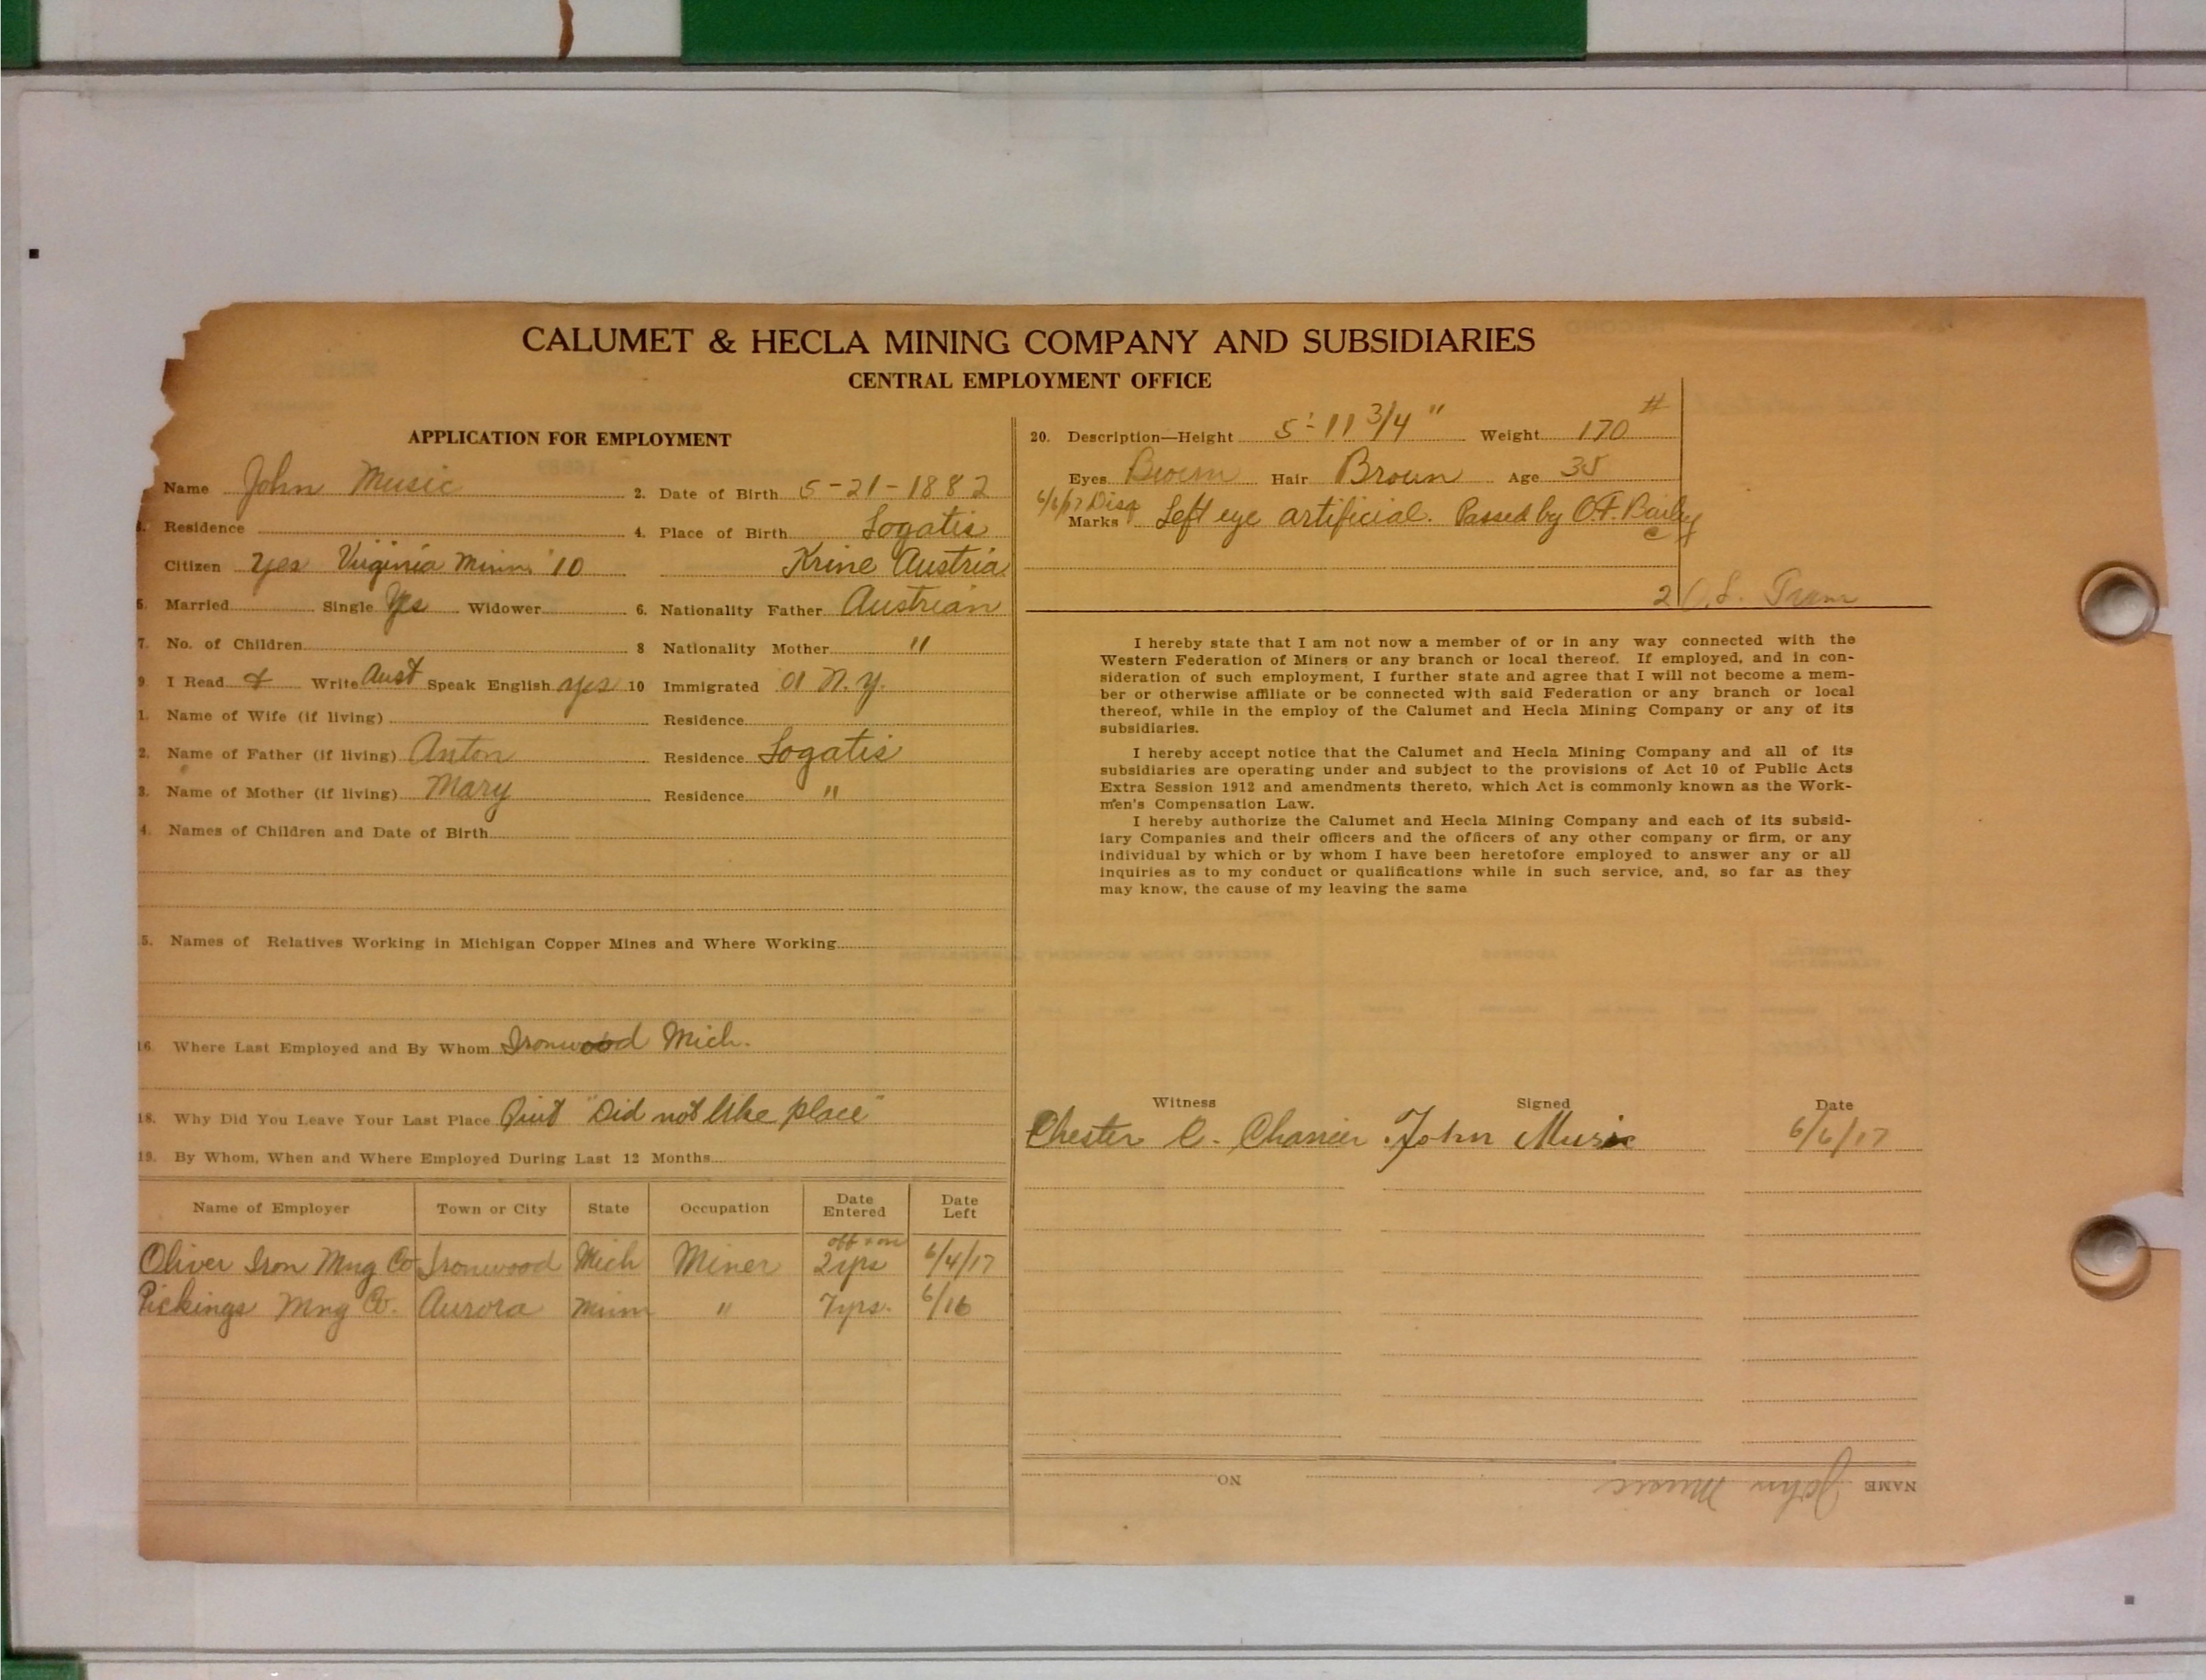 CALUMET & HECLA MINING COMPANY AND SUBSIDIARIES
CENTRAL EMPLOYMENT OFFICE
APPLICATION FOR EMPLOYMENT
Name John Music 2. Date of Birth 5-21-1882
3. Residence 4. Place of Birth Logatis
Citizen yes Virginia Minn '10 Krine Austria
5. Married Single Yes Widower 6. Nationality Father Austrian
7. No. of Children 8 Nationality Mother "
9. I Read & Write Aust Speak English yes 10 Immigrated 01 N.Y.
1. Name of Wife (if living) Residence
2. Name of Father (if living) Anton Residence Logatis
3. Name of Mother (if living) Mary Residence "
4. Names of Children and Date of Birth
5. Names of Relatives Working in Michigan Copper Mines and Where Working
16. Where Last Employed and By Whom Ironwood Mich.
18. Why Did You Leave Your Last Place Quit "Did not like place"
19. By Whom, When and Where Employed During Last 12 Months
Name of Employer Town or City State Occupation Date Entered Date Left
off & on
Oliver Iron Mng Co Ironwood Mich Miner 2 yrs 6/4/17
Pickings Mng Co. Aurora Minn " 7 yrs. 6/16
20. Description—Height 5'-11 3/4" Weight 170 #
Eyes Brown Hair Broun Age 35
6/6/17 Disq
Marks Left eye artificial. Passed by O.F. Bailey
2
I hereby state that I am not now a member of or in any way connected with the
Western Federation of Miners or any branch or local thereof. If employed, and in con-
sideration of such employment, I further state and agree that I will not become a mem-
ber or otherwise affiliate or be connected with said Federation or any branch or local
thereof, while in the employ of the Calumet and Hecla Mining Company or any of its
subsidiaries.
I hereby accept notice that the Calumet and Hecla Mining Company and all of its
subsidiaries are operating under and subject to the provisions of Act 10 of Public Acts
Extra Session 1912 and amendments thereto, which Act is commonly known as the Work-
men's Compensation Law.
I hereby authorize the Calumet and Hecla Mining Company and each of its subsid-
iary Companies and their officers and the officers of any other company or firm, or any
individual by which or by whom I have been heretofore employed to answer any or all
inquiries as to my conduct or qualifications while in such service, and, so far as they
may know, the cause of my leaving the same
Witness Signed Date
Chester C. John Music 6/6/17
NAME John Music NO